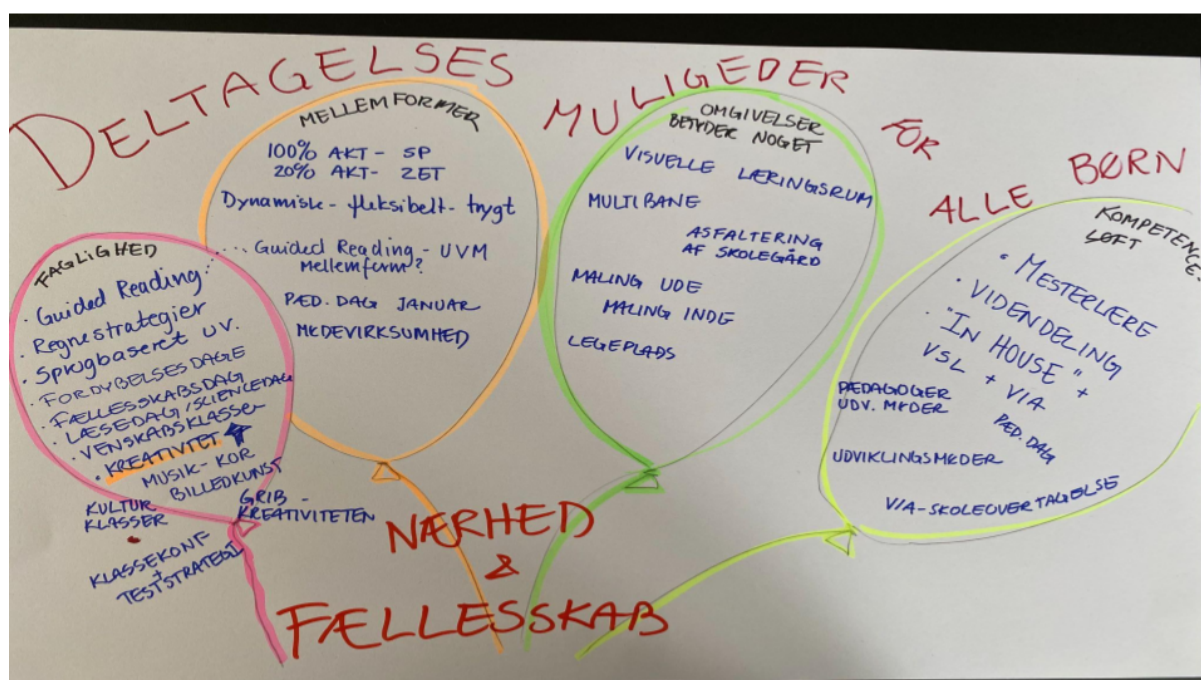 DELTAGELSES MULIGEDER FOR ALLE BØRN
FAGLIGHED
• Guided Reading...
• Regnestrategier
• Sprogbaseret UV.
• FORDYBELSESDAGE
• FÆLLESSKABSDAG
• LÆSEDAG/SCIENCEDAG
• VENSKABSKLASSER
• KREATIVITET
MUSIK - KOR
BILLEDKUNST
KULTUR
KLASSER
GRIB -
KREATIVITETEN
KLASSEKONF
+
TESTSTRATEGI
MELLEMFORMER
100% AKT - SP
20% AKT - ZET
Dynamisk - fleksibelt - trygt
... Guided Reading - UVM
Mellemform?
PÆD. DAG JANUAR
MEDEVIRKSUMHED
OMGIVELSER
BETYDER NOGET
VISUELLE LÆRINGSRUM
MULTIBANE
ASFALTERING
AF SKOLEGÅRD
MALING UDE
MALING INDE
LEGEPLADS
KOMPETENCE-
LØFT
• MESTERLÆRE
• VIDENDELING
• "IN HOUSE" +
VSL + VIA
PÆDAGOGER
UDV. MØDER
PÆD. DAG
UDVIKLINGSMØDER
VIA-SKOLEOVERTAGELSE
NÆRHED
&
FÆLLESSKAB